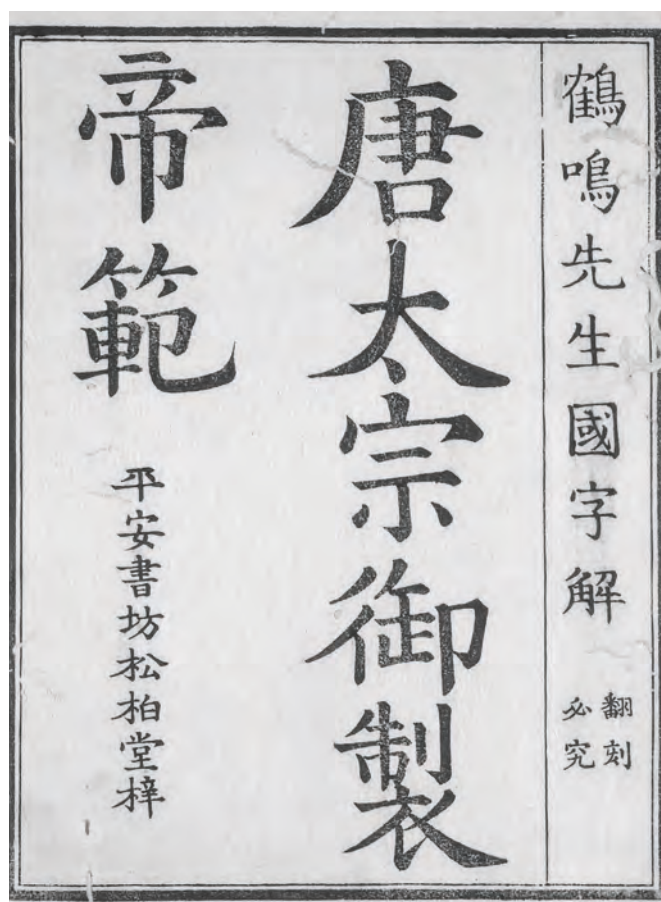 鶴鳴先生國字解
翻刻
必究
唐太宗御製
帝範
平安書坊松柏堂梓